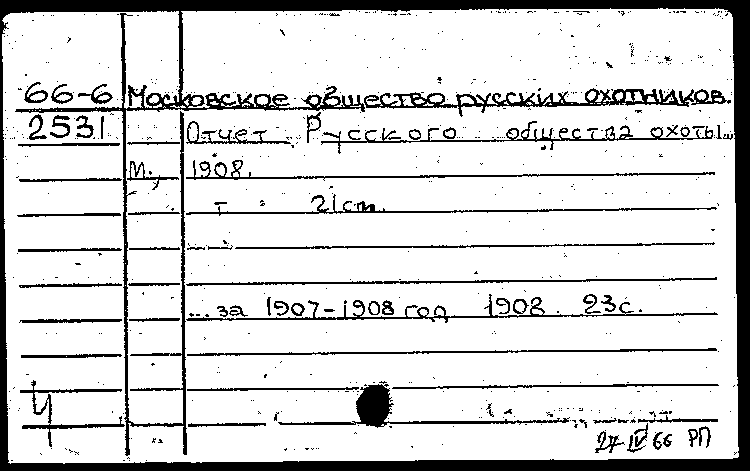 66-6 Московское общество русских охотников.
2531 Отчет Русского общества охоты...
М., 1908.
т 21cm.
... за 1907-1908 год 1908. 23с.
Ч
27 IV 66 РП